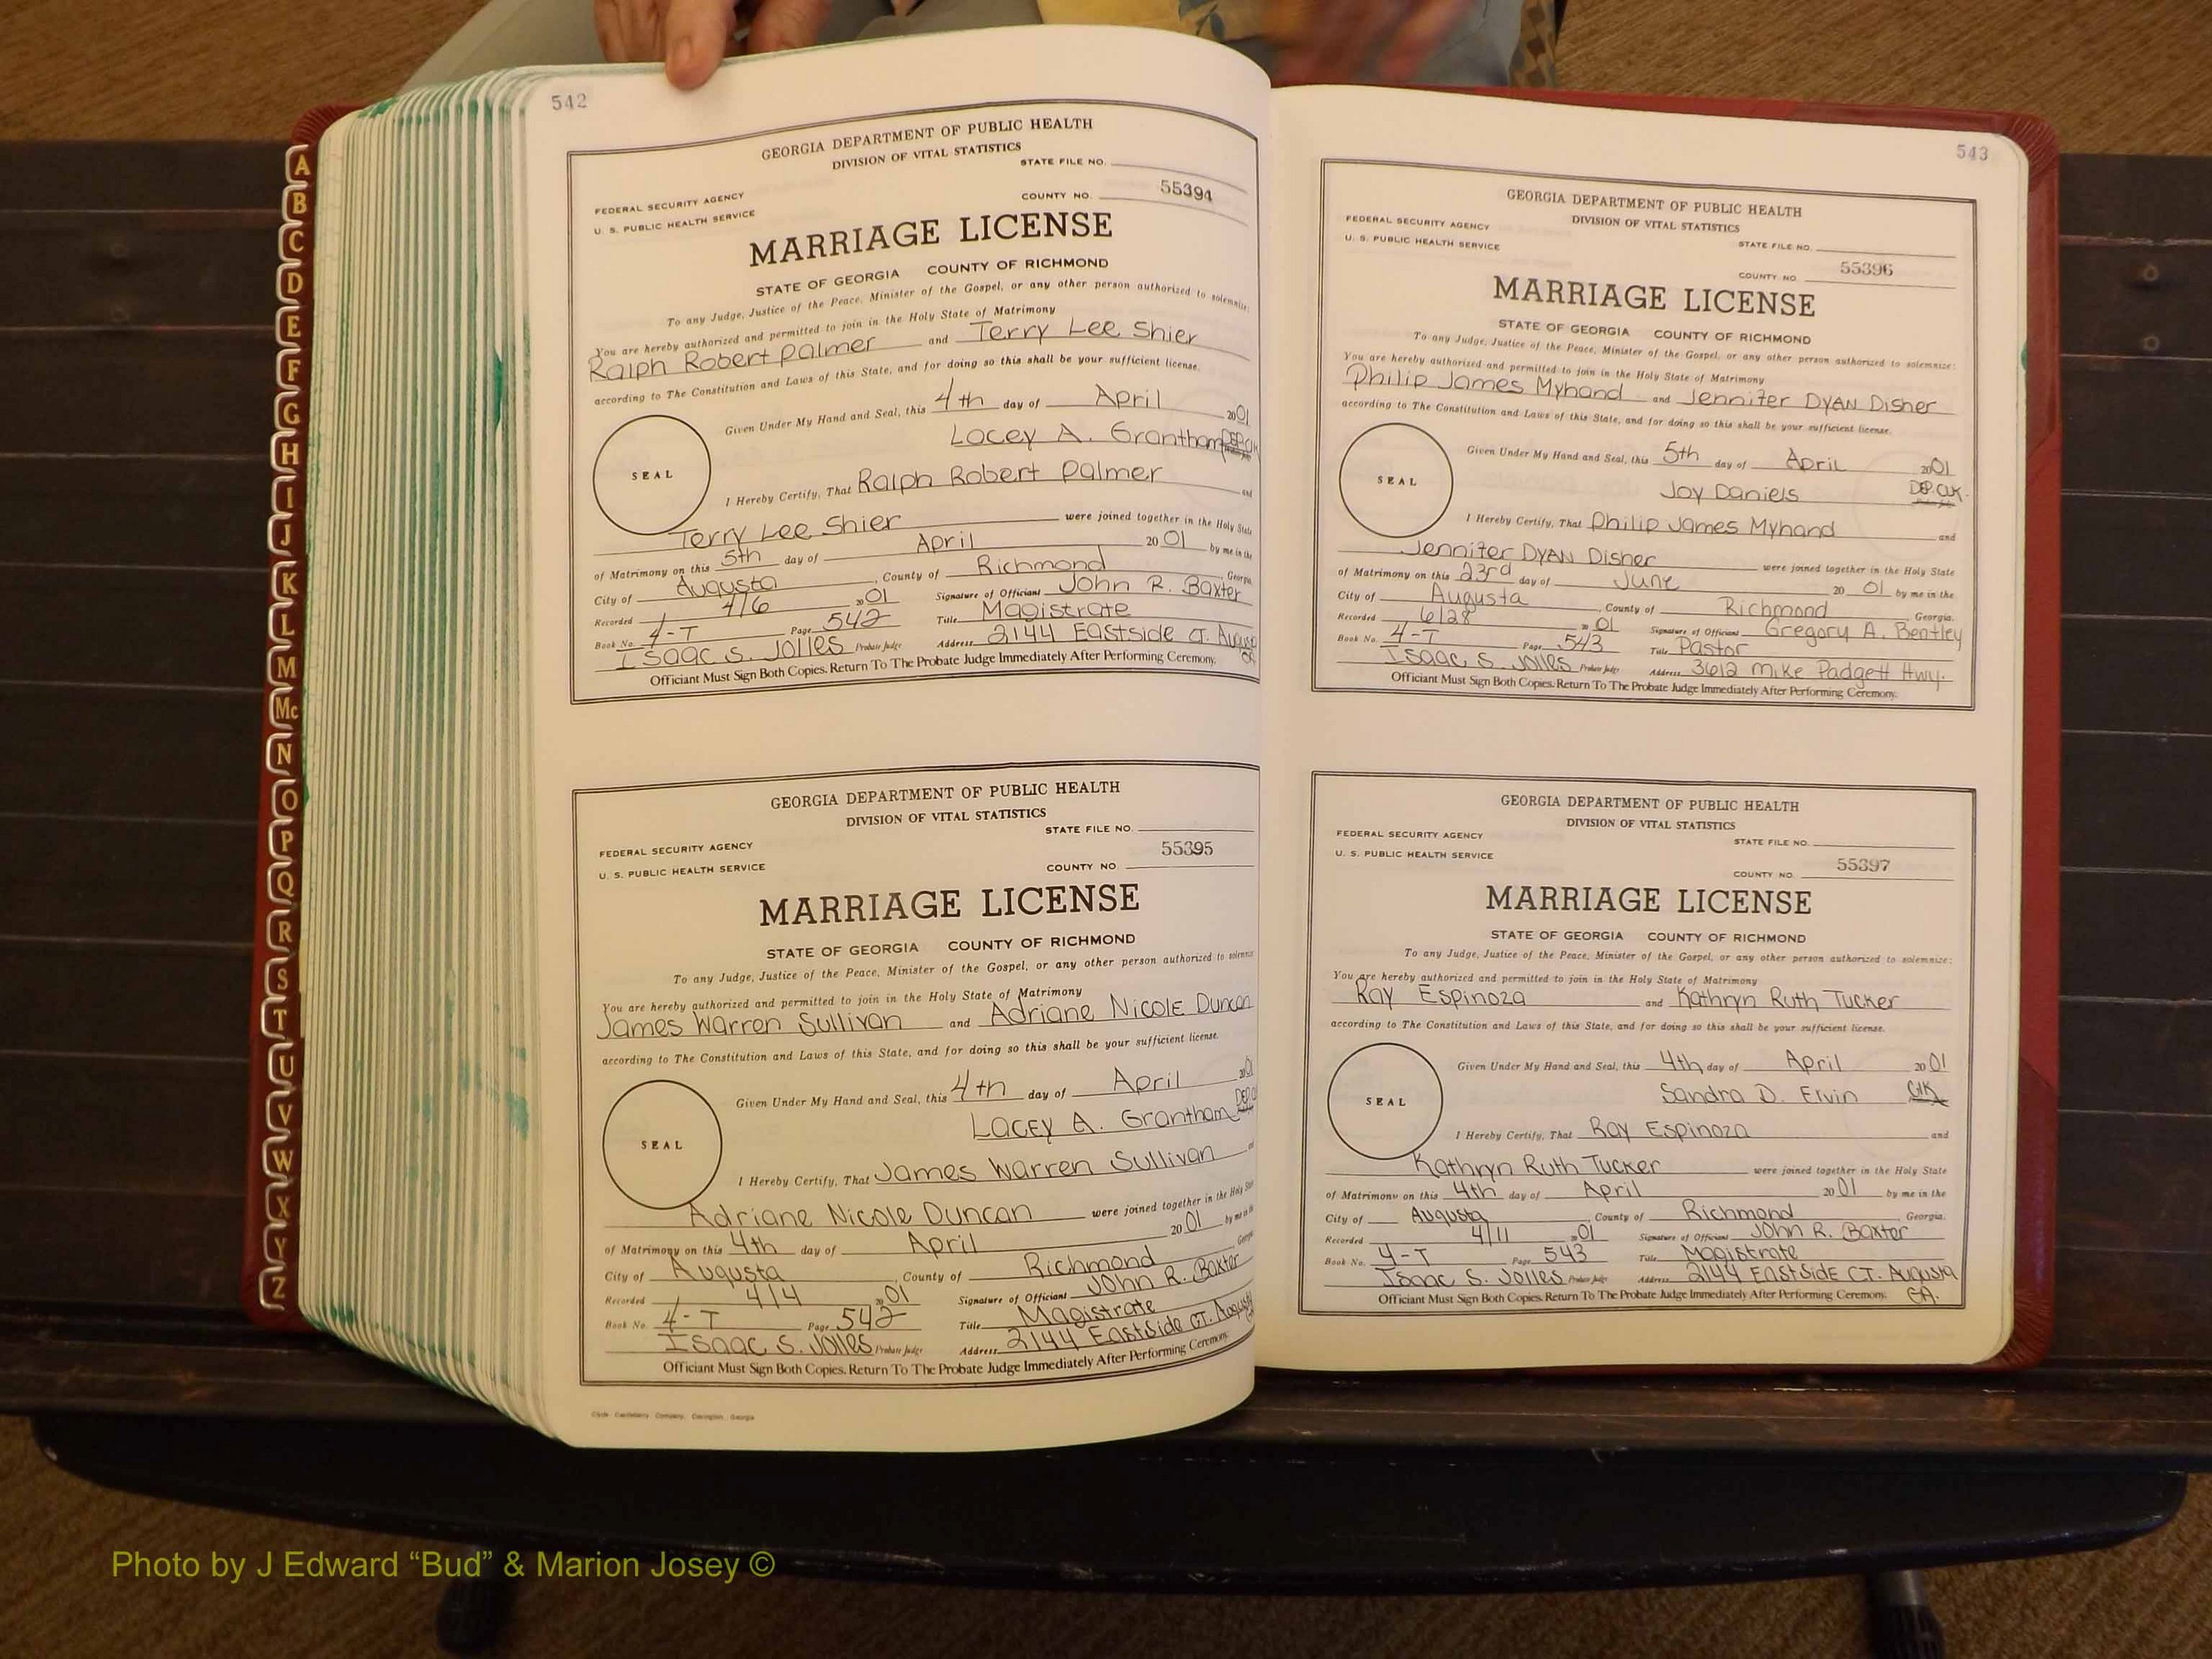 542
GEORGIA DEPARTMENT OF PUBLIC HEALTH
DIVISION OF VITAL STATISTICS
STATE FILE NO.
FEDERAL SECURITY AGENCY
COUNTY NO. 55394
U. S. PUBLIC HEALTH SERVICE
MARRIAGE LICENSE
STATE OF GEORGIA COUNTY OF RICHMOND
To any Judge, Justice of the Peace, Minister of the Gospel, or any other person authorized to solemnize:
You are hereby authorized and permitted to join in the Holy State of Matrimony
Ralph Robert Palmer and Terry Lee Shier
according to The Constitution and Laws of this State, and for doing so this shall be your sufficient license.
Given Under My Hand and Seal, this 4th day of April 2001
Lacey A. Grantham DEP. CLK
SEAL
I Hereby Certify, That Ralph Robert Palmer and
Terry Lee Shier were joined together in the Holy State
of Matrimony on this 5th day of April 2001 by me in the
City of Augusta, County of Richmond Georgia.
Recorded 4/6 2001 Signature of Officiant John R. Baxter
Book No. 4-T Page 542 Title Magistrate
Isaac S. Jolles Probate Judge Address 2144 Eastside CT. Augusta
GA
Officiant Must Sign Both Copies. Return To The Probate Judge Immediately After Performing Ceremony.
GEORGIA DEPARTMENT OF PUBLIC HEALTH
DIVISION OF VITAL STATISTICS
STATE FILE NO.
FEDERAL SECURITY AGENCY
COUNTY NO. 55395
U. S. PUBLIC HEALTH SERVICE
MARRIAGE LICENSE
STATE OF GEORGIA COUNTY OF RICHMOND
To any Judge, Justice of the Peace, Minister of the Gospel, or any other person authorized to solemnize
You are hereby authorized and permitted to join in the Holy State of Matrimony
James Warren Sullivan and Adriane Nicole Duncan
according to The Constitution and Laws of this State, and for doing so this shall be your sufficient license.
Given Under My Hand and Seal, this 4th day of April 2001
Lacey A. Grantham DEP.
SEAL
I Hereby Certify, That James Warren Sullivan and
Adriane Nicole Duncan were joined together in the Holy State
of Matrimony on this 4th day of April 2001 by me in the
City of Augusta, County of Richmond Georgia
Recorded 4/4 2001 Signature of Officiant John R. Baxter
Book No. 4-T Page 542 Title Magistrate
Isaac S. Jolles Probate Judge Address 2144 Eastside CT. Augusta
Officiant Must Sign Both Copies. Return To The Probate Judge Immediately After Performing Ceremony.
543
GEORGIA DEPARTMENT OF PUBLIC HEALTH
DIVISION OF VITAL STATISTICS
FEDERAL SECURITY AGENCY
STATE FILE NO.
U. S. PUBLIC HEALTH SERVICE
COUNTY NO. 55396
MARRIAGE LICENSE
STATE OF GEORGIA COUNTY OF RICHMOND
To any Judge, Justice of the Peace, Minister of the Gospel, or any other person authorized to solemnize:
You are hereby authorized and permitted to join in the Holy State of Matrimony
Philip James Myhand and Jennifer DYAN Disher
according to The Constitution and Laws of this State, and for doing so this shall be your sufficient license.
Given Under My Hand and Seal, this 5th day of April 2001
Joy Daniels DEP. CLK.
SEAL
I Hereby Certify, That Philip James Myhand and
Jennifer DYAN Disher were joined together in the Holy State
of Matrimony on this 23rd day of June 2001 by me in the
City of Augusta, County of Richmond Georgia.
Recorded 6/28 2001 Signature of Officiant Gregory A. Bentley
Book No. 4-T Page 543 Title Pastor
Isaac S. Jolles Probate Judge Address 3612 Mike Padgett Hwy.
Officiant Must Sign Both Copies. Return To The Probate Judge Immediately After Performing Ceremony.
GEORGIA DEPARTMENT OF PUBLIC HEALTH
DIVISION OF VITAL STATISTICS
FEDERAL SECURITY AGENCY
STATE FILE NO.
U. S. PUBLIC HEALTH SERVICE
COUNTY NO. 55397
MARRIAGE LICENSE
STATE OF GEORGIA COUNTY OF RICHMOND
To any Judge, Justice of the Peace, Minister of the Gospel, or any other person authorized to solemnize:
You are hereby authorized and permitted to join in the Holy State of Matrimony
Ray Espinoza and Kathryn Ruth Tucker
according to The Constitution and Laws of this State, and for doing so this shall be your sufficient license.
Given Under My Hand and Seal, this 4th day of April 2001
Sandra D. Ervin Clk
SEAL
I Hereby Certify, That Ray Espinoza and
Kathryn Ruth Tucker were joined together in the Holy State
of Matrimony on this 4th day of April 2001 by me in the
City of Augusta, County of Richmond Georgia.
Recorded 4/11 2001 Signature of Officiant John R. Baxter
Book No. 4-T Page 543 Title Magistrate
Isaac S. Jolles Probate Judge Address 2144 Eastside CT. Augusta
Officiant Must Sign Both Copies. Return To The Probate Judge Immediately After Performing Ceremony. GA.
A
B
C
D
E
F
G
H
I
J
K
L
M
Mc
N
O
P
Q
R
S
T
U
V
W
X
Y
Z
Photo by J Edward “Bud” & Marion Josey ©